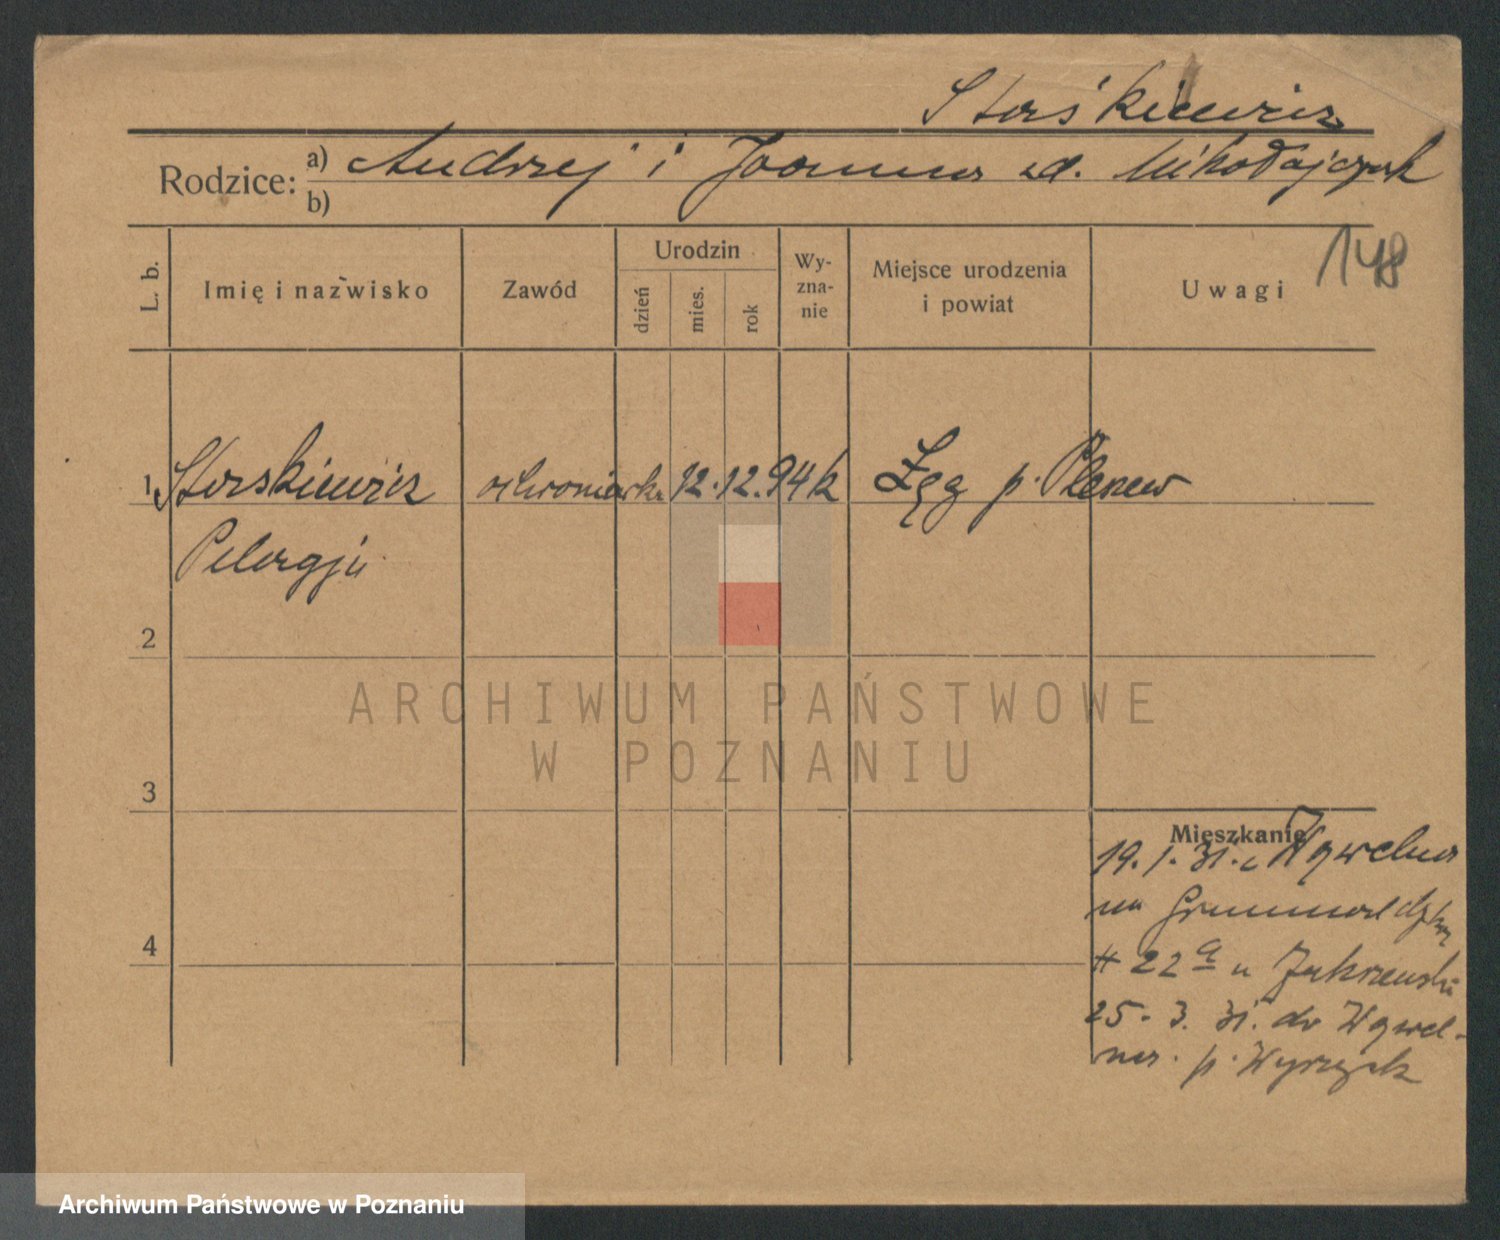 Staśkiewicz
Rodzice: a) Andrzej i Joanna zd. Mikołajczak
b)
148
L. b. Imię i nazwisko Zawód Urodzin dzień mies. rok Wyznanie Miejsce urodzenia i powiat Uwagi
1 Staśkiewicz ochroniarka 12. 12. 94 k Łęg p. Pleszew
Pelagja
2
ARCHIWUM PAŃSTWOWE
W POZNANIU
3
Mieszkanie
19. 1. 31. z Wąwelna
na Grunwaldzką
# 22 a u Zakrzewski
4
25. 3. 31. do Wąwel-
na. p. Wyrzysk
Archiwum Państwowe w Poznaniu